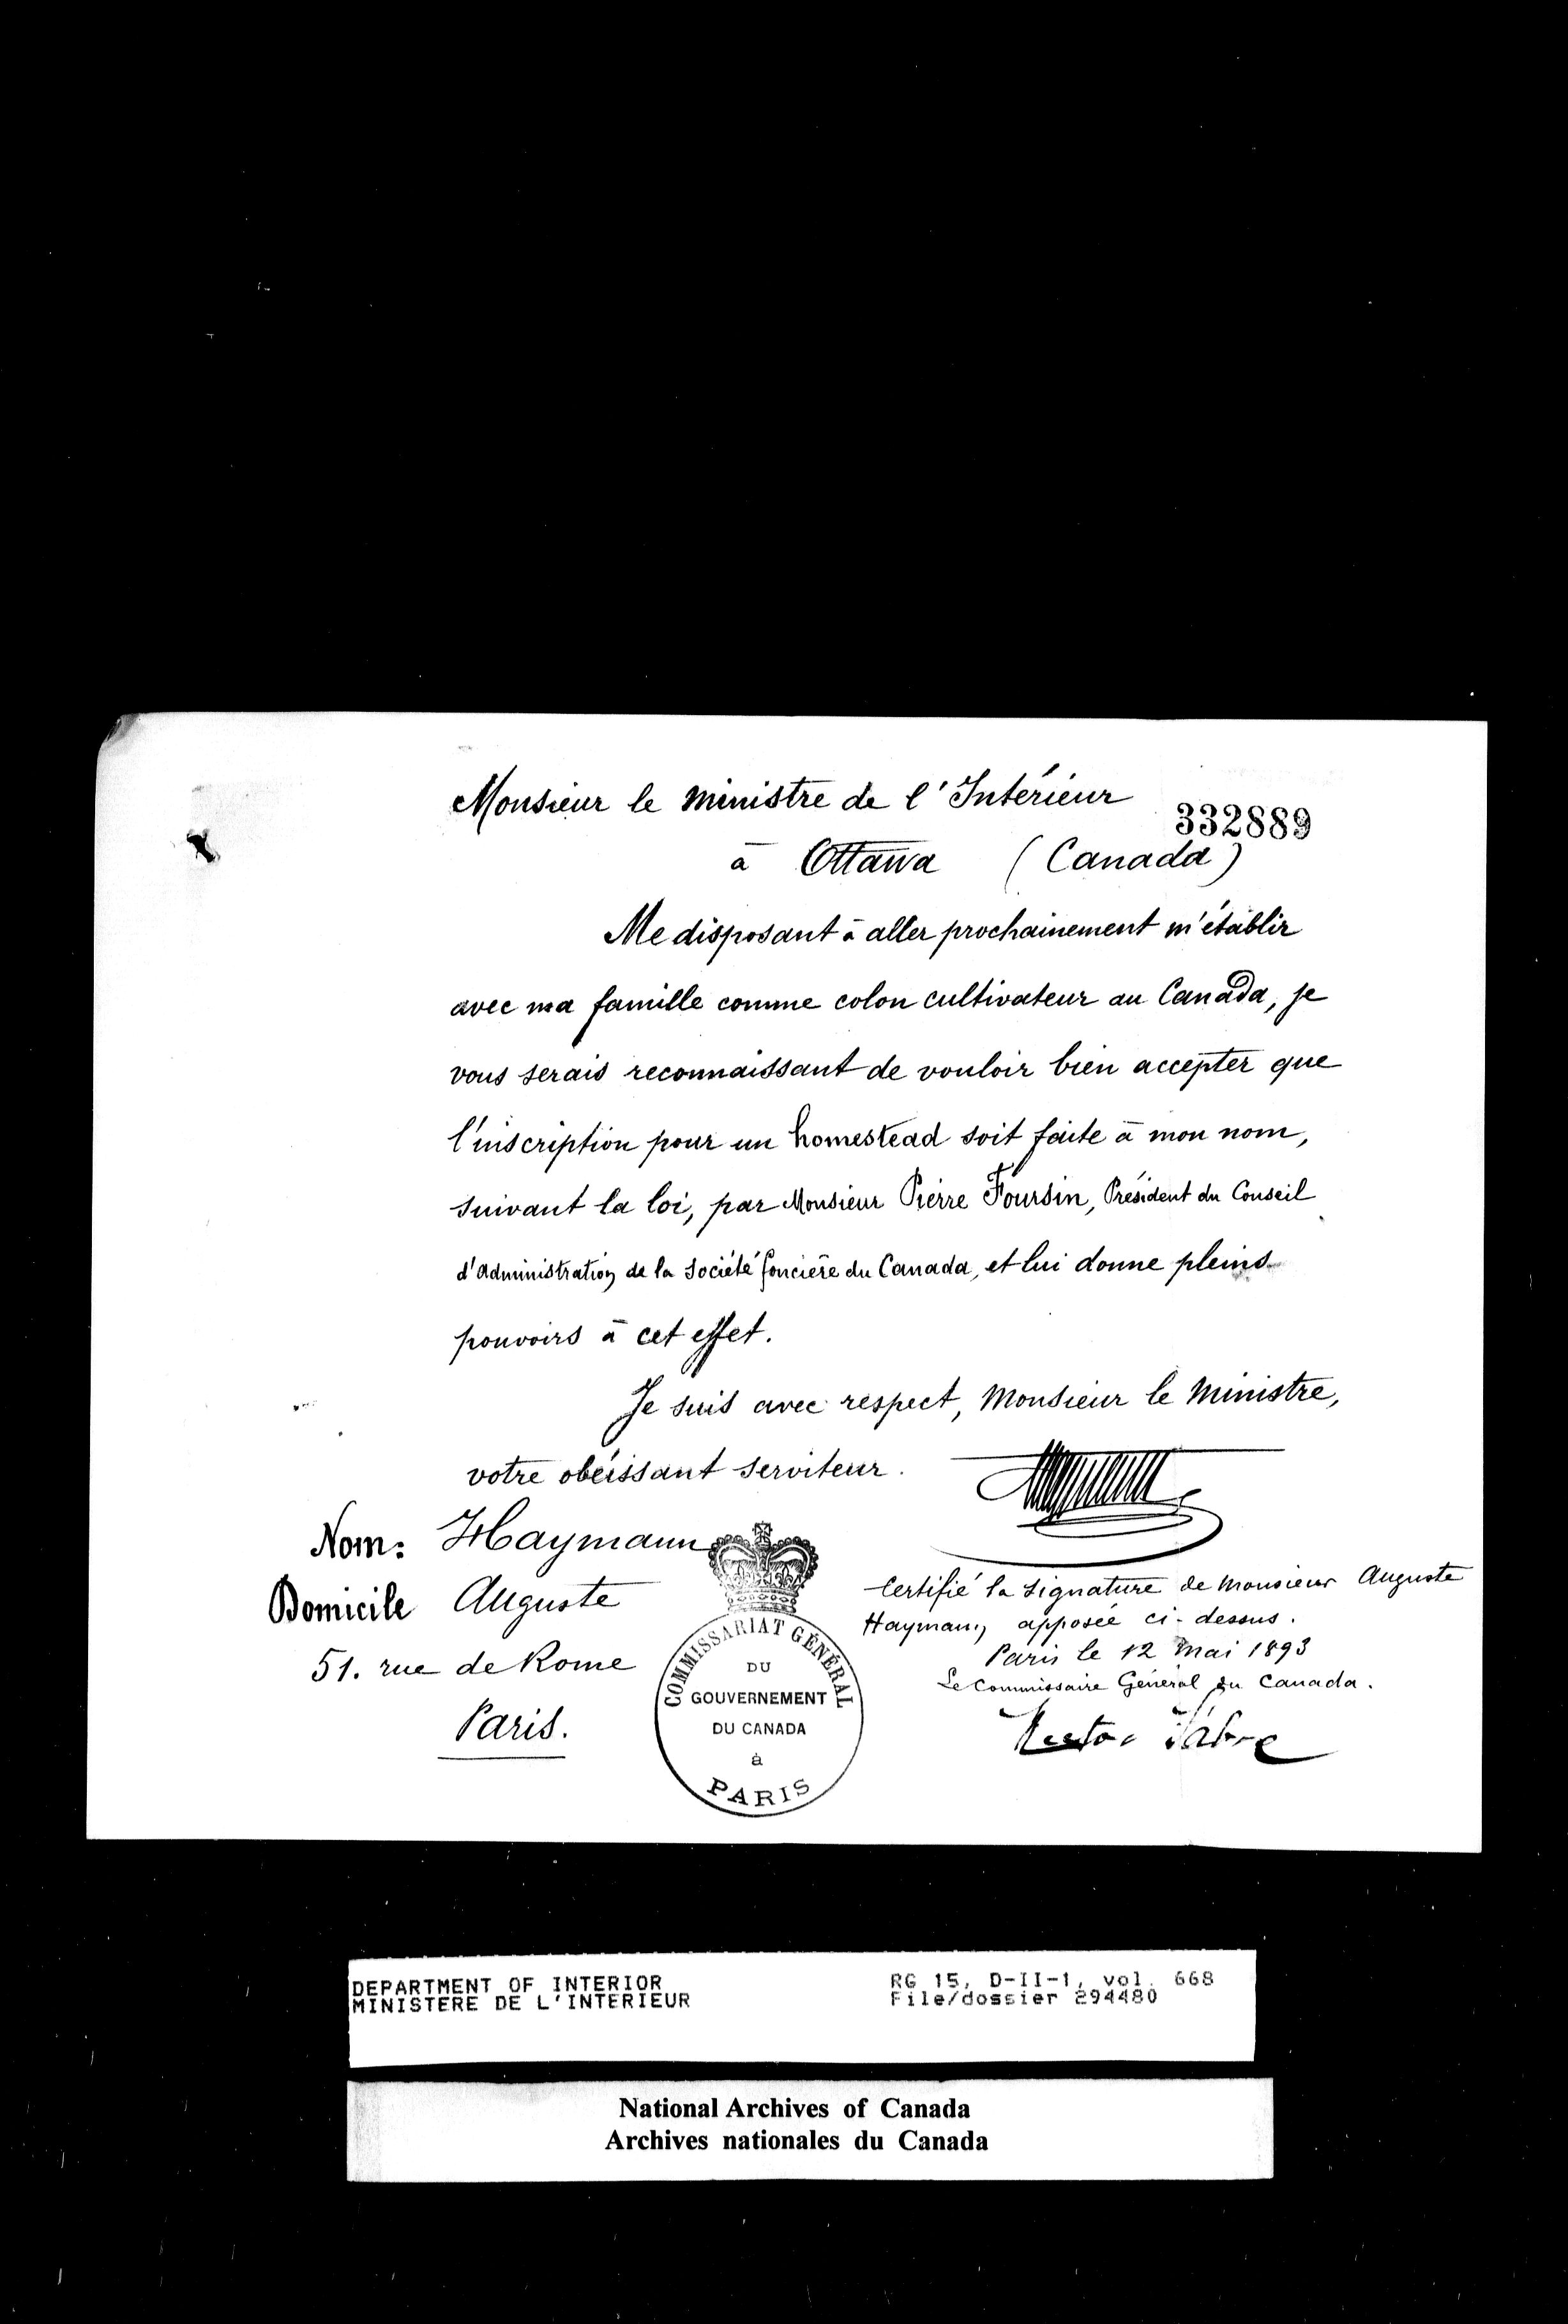 Monsieur le Ministre de l'Intérieur
332889
à Ottawa (Canada)
Me disposant à aller prochainement m'établir
avec ma famille comme colon cultivateur au Canada, je
vous serais reconnaissant de vouloir bien accepter que
l'inscription pour un homestead soit faite à mon nom,
suivant la loi, par Monsieur Pierre Foursin, Président du Conseil
d'Administration de la Société foncière du Canada, et lui donne pleins
pouvoirs à cet effet.
Je suis avec respect, Monsieur le Ministre,
votre obéissant serviteur.
Nom: Haymann
Domicile Auguste
51. rue de Rome
Paris.
COMMISSARIAT GÉNÉRAL
DU
GOUVERNEMENT
DU CANADA
à
PARIS
Certifié la signature de Monsieur Auguste
Haymann apposée ci-dessus.
Paris le 12 Mai 1893
Le Commissaire Général du Canada.
Hector Fabre
DEPARTMENT OF INTERIOR
MINISTERE DE L'INTERIEUR
RG 15, D-II-1, vol. 668
File/dossier 294480
National Archives of Canada
Archives nationales du Canada